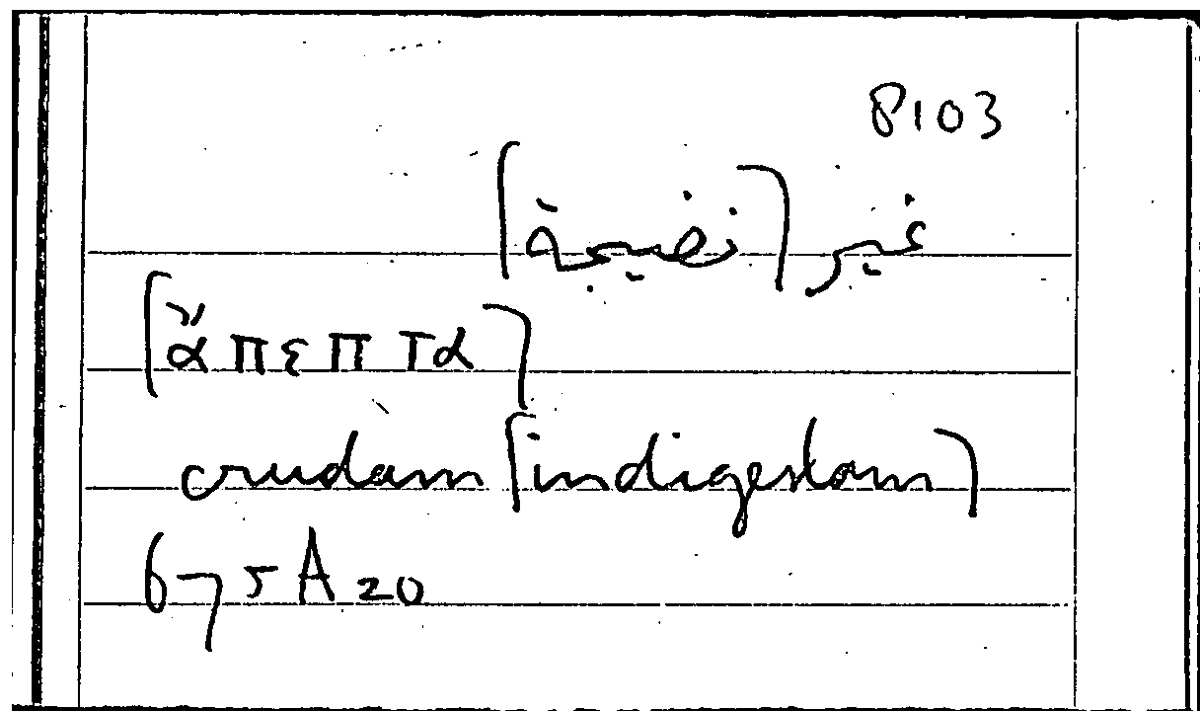 P103
غير [نضيجة]
[ἄπεπτα]
crudam [indigestam]
675A20